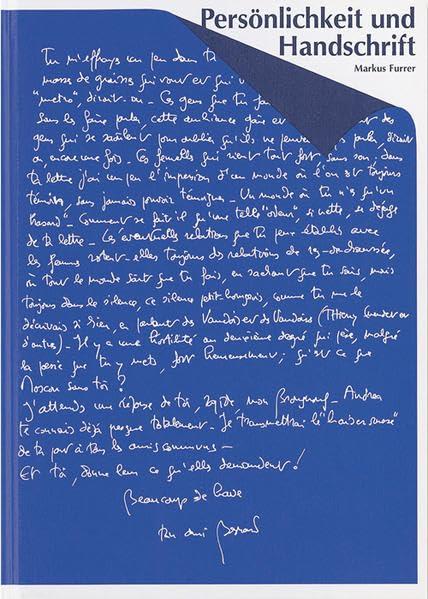 Persönlichkeit und
Handschrift
Markus Furrer
Tu m'effrayes un peu dans ta
masse de graisse qui vont et qui
"metro", dirait-on - Ces gens que tu
sans les faire parler, cette ambiance gaie et
gens qui se saoulent pour oublier qu'ils ne peuvent parler, dirait
on encore une fois - Ces femelles qui rient tout fort, sans son, dans
ta lettre j'ai un peu l'impression d'un monde où l'on est toujours
témoin, sans jamais pouvoir témoigner - Un monde où tu n'es qu'un
"hasard" - Comment se fait-il qu'une telle "odeur", si nette, se dégage
de ta lettre - Ces éventuelles relations que tu peux établir avec
les femmes
où tout le monde sait que tu sais, mais
toujours dans le silence, ce silence petit-bourgeois, comme tu me le
décrivais si bien, en parlant de Vaudois et de Vaudoises (Thierry
d'autres) - Il y a une hostilité au deuxième degré qui
la poésie que tu y mets, fort heureusement; qu'est ce que
Moscou sans toi ?
J'attends une réponse de toi,
te connais déjà presque totalement - Je transmettrai le
de ta part à tous les amis communs -
Et toi, donne leur ce qu'elles demandent !
Beaucoup de
Ton ami